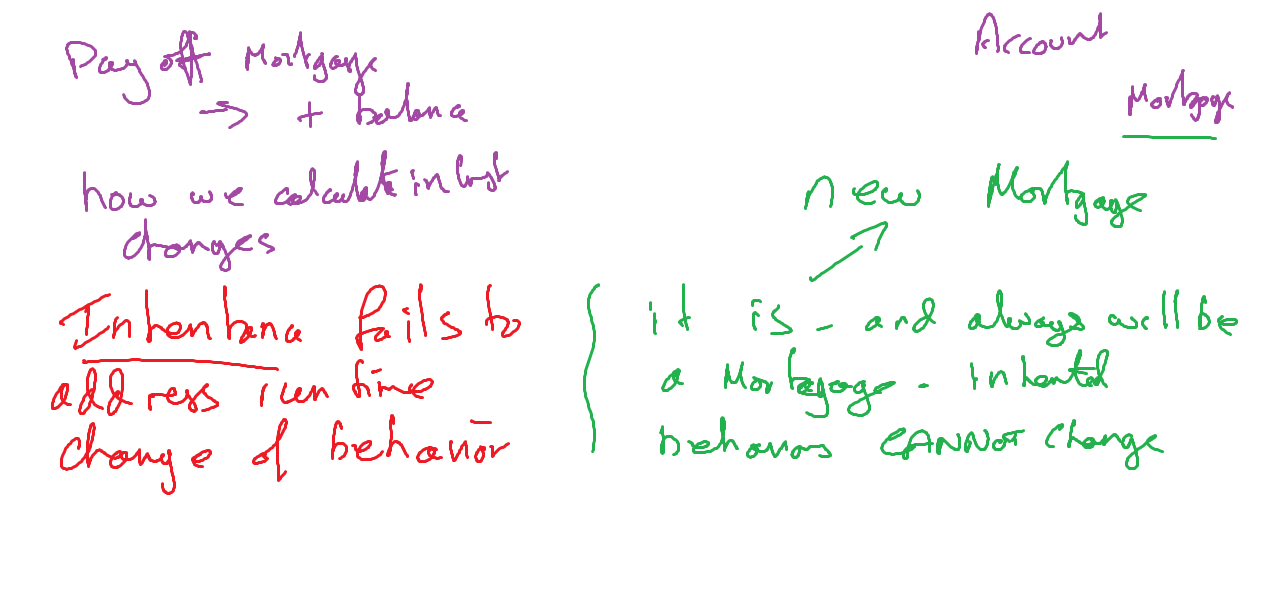 Pay off Mortgage
→ + balance
how we calculate intrst
changes
Inheritance fails to
address run time
change of behavior
Account
Mortgage
new Mortgage
it is - and always will be
a Mortgage - Inherited
behaviors CANNOT change